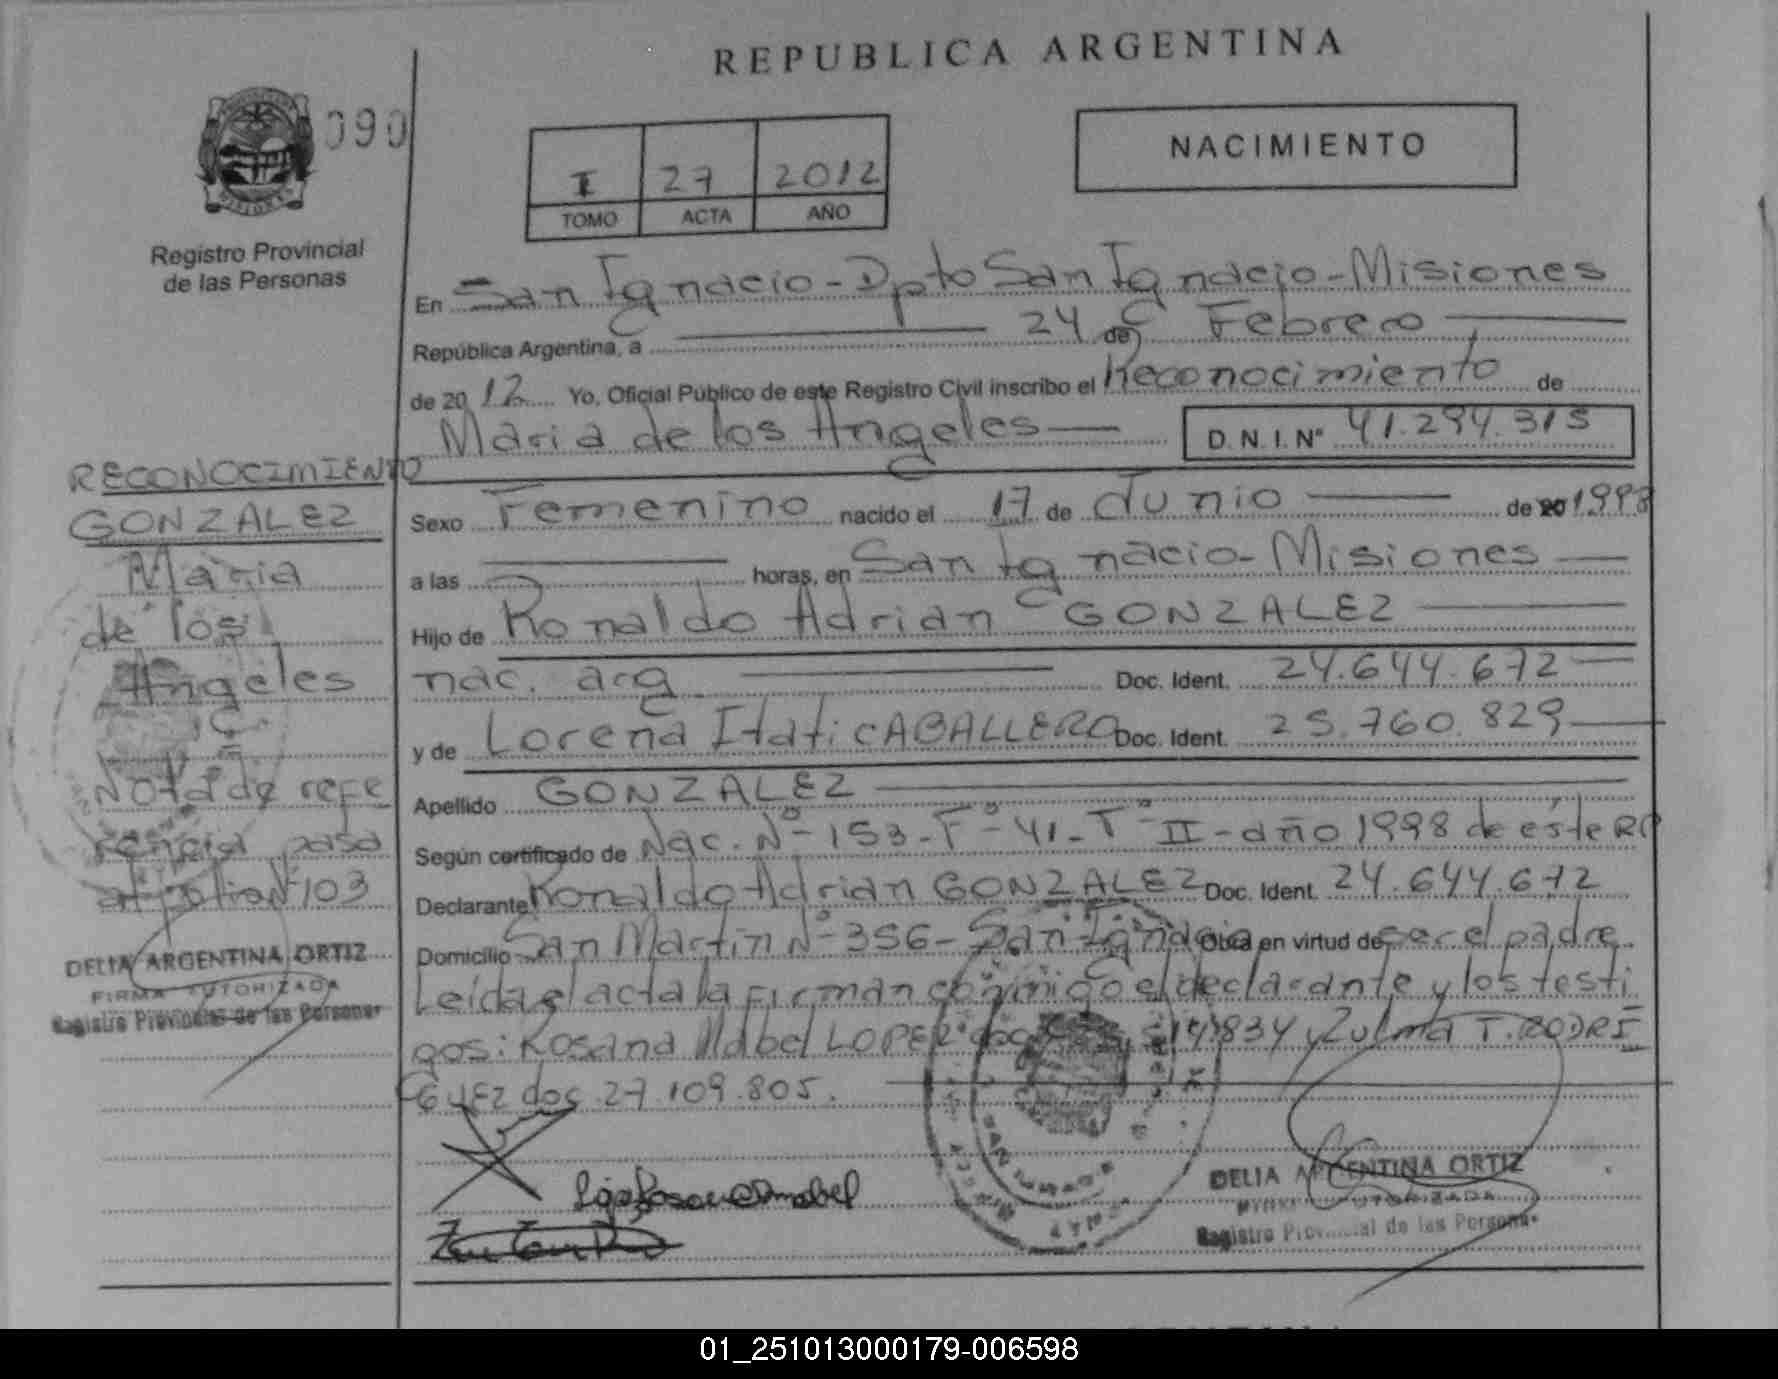 REPUBLICA ARGENTINA
090
NACIMIENTO
I 27 2012
TOMO ACTA AÑO
Registro Provincial
de las Personas
En San Ignacio - Dpto San Ignacio - Misiones
República Argentina, a 24 de Febrero
de 2012 Yo, Oficial Público de este Registro Civil inscribo el Reconocimiento de
Maria de los Angeles D.N.I. Nº 41.294.315
Sexo Femenino nacido el 17 de Junio de 20 1998
a las horas, en San Ignacio - Misiones
Hijo de Ronaldo Adrian GONZALEZ
nac. arg Doc. Ident. 24.644.672
y de Lorena Itati CABALLERO Doc. Ident. 25.760.829
Apellido GONZALEZ
Según certificado de Nac. Nº 153 - Fº 41 - Tº II - año 1998 de éste RP
Declarante Ronaldo Adrian GONZALEZ Doc. Ident. 24.644.672
Domicilio San Martin Nº 356 - San Ignacio Obra en virtud de ser el padre
Leida el acta la firman conmigo el declarante y los testi
gos: Rosana Mabel LOPEZ doc 834 y Zulma T. RODRI
GUEZ doc. 27.109.805.
RECONOCIMIENTO
GONZALEZ
Maria
de los
Angeles
Nota de refe
rencia pasa
al folio Nº 103
DELIA ARGENTINA ORTIZ
FIRMA AUTORIZADA
Registro Provincial de las Personas
DELIA ARGENTINA ORTIZ
FIRMA AUTORIZADA
Registro Provincial de las Personas
01_251013000179-006598